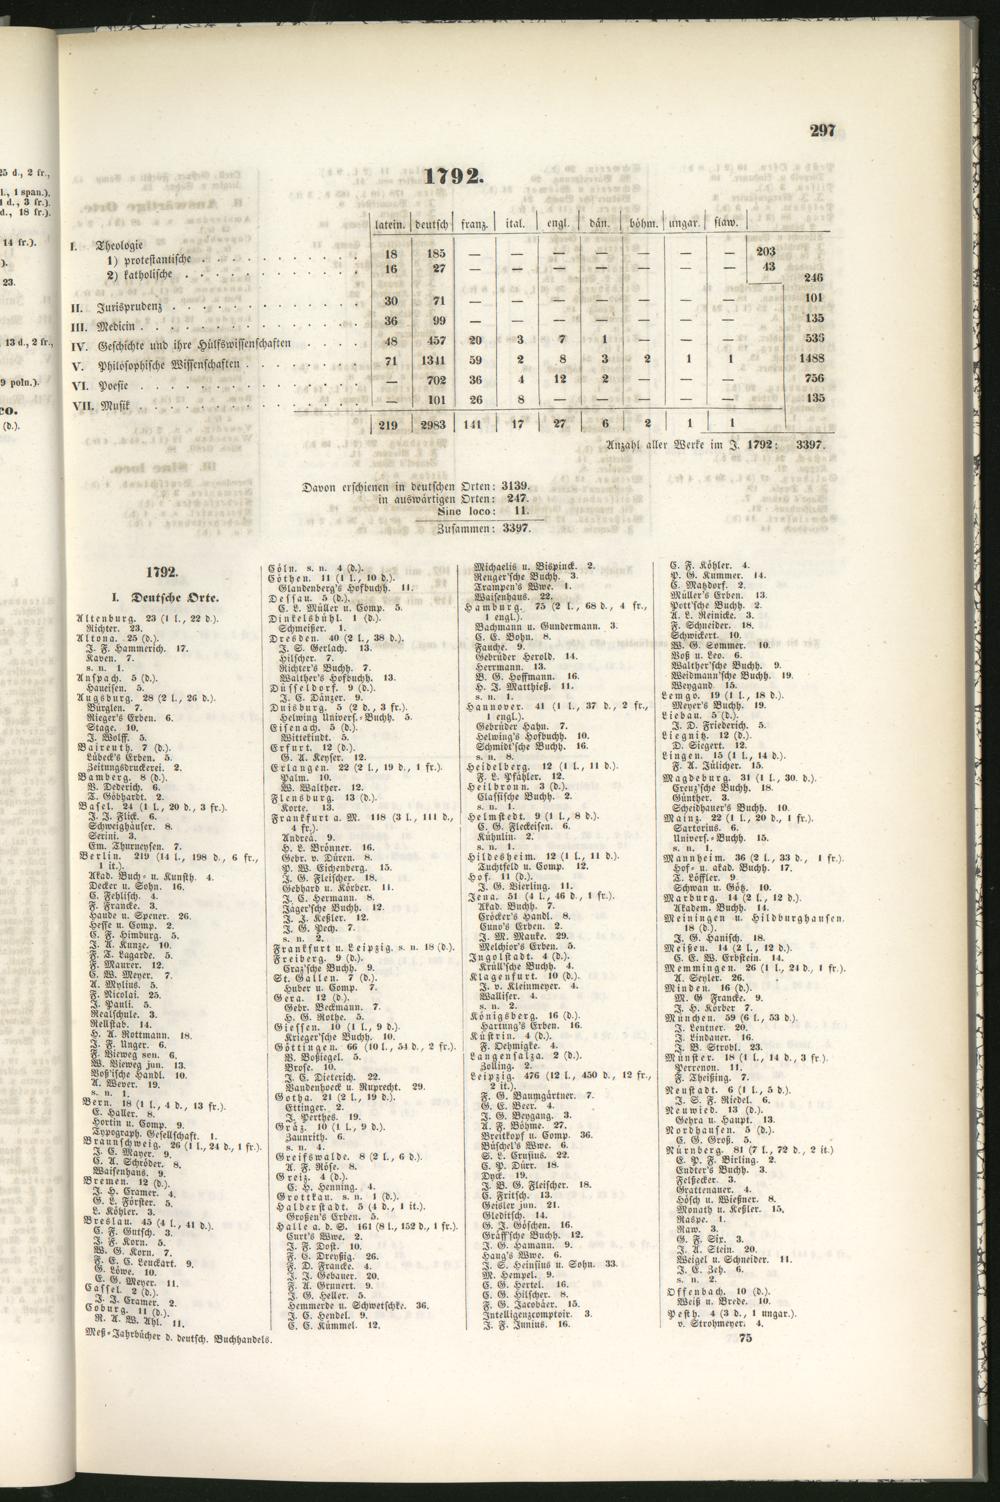 297
1792.
latein. deutsch franz. ital. engl. dän. böhm. ungar. slaw.
I. Theologie
1) protestantische 18 185 — — — — — — — 203
2) katholische 16 27 — — — — — — — 43
246
II. Jurisprudenz 30 71 — — — — — — — 101
III. Medicin 36 99 — — — — — — — 135
IV. Geschichte und ihre Hülfswissenschaften 48 457 20 3 7 1 — — — 536
V. Philosophische Wissenschaften 71 1341 59 2 8 3 2 1 1 1488
VI. Poesie — 702 36 4 12 2 — — — 756
VII. Musik — 101 26 8 — — — — — 135
219 2983 141 17 27 6 2 1 1
Anzahl aller Werke im J. 1792: 3397.
Davon erschienen in deutschen Orten: 3139.
in auswärtigen Orten: 247.
Sine loco: 11.
Zusammen: 3397.
1792.
I. Deutsche Orte.
Altenburg. 23 (1 l., 22 d.).
Richter. 23.
Altona. 25 (d.).
J. F. Hammerich. 17.
Kaven. 7.
s. n. 1.
Anspach. 5 (d.).
Haueisen. 5.
Augsburg. 28 (2 l., 26 d.).
Bürglen. 7.
Rieger's Erben. 6.
Stage. 10.
J. Wolff. 5.
Baireuth. 7 (d.).
Lübeck's Erben. 5.
Zeitungsdruckerei. 2.
Bamberg. 8 (d.).
V. Dederich. 6.
T. Göbhardt. 2.
Basel. 24 (1 l., 20 d., 3 fr.).
J. J. Flick. 6.
Schweighäuser. 8.
Serini. 3.
Em. Thurneysen. 7.
Berlin. 219 (14 l., 198 d., 6 fr.,
1 it.).
Akad. Buch- u. Kunsth. 4.
Decker u. Sohn. 16.
C. Fehlisch. 4.
F. Francke. 3.
Haude u. Spener. 26.
Hesse u. Comp. 2.
C. F. Himburg. 5.
J. A. Kunze. 10.
F. T. Lagarde. 5.
F. Maurer. 12.
C. W. Meyer. 7.
A. Mylius. 5.
F. Nicolai. 25.
J. Pauli. 5.
Realschule. 3.
Rellstab. 14.
H. A. Rottmann. 18.
J. F. Unger. 6.
F. Vieweg sen. 6.
W. Vieweg jun. 13.
Voß'ische Handl. 10.
A. Wever. 19.
s. n. 1.
Bern. 18 (1 l., 4 d., 13 fr.).
E. Haller. 8.
Hortin u. Comp. 9.
Typograph. Gesellschaft. 1.
Braunschweig. 26 (1 l., 24 d., 1 fr.).
J. C. Mayer. 9.
C. A. Schröder. 8.
Waisenhaus. 9.
Bremen. 12 (d.).
J. H. Cramer. 4.
G. L. Förster. 5.
L. Köhler. 3.
Breslau. 45 (4 l., 41 d.).
C. F. Gutsch. 3.
J. F. Korn. 5.
W. G. Korn. 7.
F. E. C. Leuckart. 9.
G. Löwe. 10.
E. G. Meyer. 11.
Cassel. 2 (d.).
J. J. Cramer. 2.
Coburg. 11 (d.).
R. A. W. Ahl. 11.
Meß-Jahrbücher d. deutsch. Buchhandels.
Cöln. s. n. 4 (d.).
Cöthen. 11 (1 l., 10 d.).
Glandenberg's Hofbuchh. 11.
Dessau. 5 (d.).
C. L. Müller u. Comp. 5.
Dinkelsbühl. 1 (d.).
Schmeißer. 1.
Dresden. 40 (2 l., 38 d.).
J. S. Gerlach. 13.
Hilscher. 7.
Richter's Buchh. 7.
Walther's Hofbuchh. 13.
Düsseldorf. 9 (d.).
J. C. Dänzer. 9.
Duisburg. 5 (2 d., 3 fr.).
Helwing Univers.-Buchh. 5.
Eisenach. 5 (d.).
Wittekindt. 5.
Erfurt. 12 (d.).
G. A. Keyser. 12.
Erlangen. 22 (2 l., 19 d., 1 fr.).
Palm. 10.
W. Walther. 12.
Flensburg. 13 (d.).
Korte. 13.
Frankfurt a. M. 118 (3 l., 111 d.,
4 fr.).
Andreä. 9.
H. L. Brönner. 16.
Gebr. v. Düren. 8.
P. W. Eichenberg. 15.
J. G. Fleischer. 18.
Gebhard u. Körber. 11.
J. C. Hermann. 8.
Jäger'sche Buchh. 12.
J. J. Keßler. 12.
J. G. Pech. 7.
s. n. 2.
Frankfurt u. Leipzig. s. n. 18 (d.).
Freiberg. 9 (d.).
Craz'sche Buchh. 9.
St. Gallen. 7 (d.).
Huber u. Comp. 7.
Gera. 12 (d.).
Gebr. Beckmann. 7.
H. G. Rothe. 5.
Giessen. 10 (1 l., 9 d.).
Krieger'sche Buchh. 10.
Göttingen. 66 (10 l., 54 d., 2 fr.).
V. Boßiegel. 5.
Brose. 10.
J. C. Dieterich. 22.
Vandenhoeck u. Ruprecht. 29.
Gotha. 21 (2 l., 19 d.).
Ettinger. 2.
J. Perthes. 19.
Gräz. 10 (1 l., 9 d.).
Zaunrith. 6.
s. n. 4.
Greifswalde. 8 (2 l., 6 d.).
A. F. Röse. 8.
Greiz. 4 (d.).
C. H. Henning. 4.
Grottkau. s. n. 1 (d.).
Halberstadt. 5 (4 d., 1 it.).
Großen's Erben. 5.
Halle a. d. S. 161 (8 l., 152 d., 1 fr.).
Curt's Wwe. 2.
J. F. Dost. 10.
F. C. Dreyßig. 26.
F. D. Francke. 4.
J. J. Gebauer. 20.
F. A. Grunert. 9.
J. G. Heller. 5.
Hemmerde u. Schwetschke. 36.
J. C. Hendel. 9.
C. C. Kümmel. 12.
Michaelis u. Bispinck. 2.
Renger'sche Buchh. 3.
Trampen's Wwe. 1.
Waisenhaus. 22.
Hamburg. 75 (2 l., 68 d., 4 fr.,
1 engl.).
Bachmann u. Gundermann. 3.
C. E. Bohn. 8.
Fauche. 9.
Gebrüder Herold. 14.
Herrmann. 13.
B. G. Hoffmann. 16.
H. J. Matthieß. 11.
s. n. 1.
Hannover. 41 (1 l., 37 d., 2 fr.,
1 engl.).
Gebrüder Hahn. 7.
Helwing's Hofbuchh. 10.
Schmidt'sche Buchh. 16.
s. n. 8.
Heidelberg. 12 (1 l., 11 d.).
F. L. Pfähler. 12.
Heilbronn. 3 (d.).
Classische Buchh. 2.
s. n. 1.
Helmstedt. 9 (1 l., 8 d.).
C. G. Fleckeisen. 6.
Kühnlin. 2.
s. n. 1.
Hildesheim. 12 (1 l., 11 d.).
Tuchtfeld u. Comp. 12.
Hof. 11 (d.).
J. G. Vierling. 11.
Jena. 51 (4 l., 46 d., 1 fr.).
Akad. Buchh. 7.
Cröcker's Handl. 8.
Cuno's Erben. 2.
J. M. Mauke. 29.
Melchior's Erben. 5.
Ingolstadt. 4 (d.).
Krüll'sche Buchh. 4.
Klagenfurt. 10 (d.).
J. v. Kleinmeyer. 4.
Walliser. 4.
s. n. 2.
Königsberg. 16 (d.).
Hartung's Erben. 16.
Küstrin. 4 (d.).
F. Oehmigke. 4.
Langensalza. 2 (d.).
Zolling. 2.
Leipzig. 476 (12 l., 450 d., 12 fr.,
2 it.).
F. G. Baumgärtner. 7.
G. E. Beer. 4.
J. G. Beygang. 3.
A. F. Böhme. 27.
Breitkopf u. Comp. 36.
Büschel's Wwe. 6.
S. L. Crusius. 22.
C. P. Dürr. 18.
Dyck. 19.
J. B. G. Fleischer. 18.
C. Fritsch. 13.
Geisler jun. 21.
Gleditsch. 14.
G. J. Göschen. 16.
Gräff'sche Buchh. 12.
J. G. Hamann. 9.
Haug's Wwe. 6.
J. S. Heinsius u. Sohn. 33.
M. Hempel. 9.
C. G. Hertel. 16.
C. G. Hilscher. 8.
F. G. Jacobäer. 15.
Intelligenzcomptoir. 3.
J. F. Junius. 16.
C. F. Köhler. 4.
P. G. Kummer. 14.
C. Matzdorf. 2.
Müller's Erben. 13.
Pott'sche Buchh. 2.
A. L. Reinicke. 3.
F. Schneider. 18.
Schwickert. 10.
W. G. Sommer. 10.
Voß u. Leo. 6.
Walther'sche Buchh. 9.
Weidmann'sche Buchh. 19.
Weygand. 15.
Lemgo. 19 (1 l., 18 d.).
Meyer's Buchh. 19.
Liebau. 5 (d.).
J. D. Friederich. 5.
Liegnitz. 12 (d.).
D. Siegert. 12.
Lingen. 15 (1 l., 14 d.).
F. A. Jülicher. 15.
Magdeburg. 31 (1 l., 30. d.).
Creuz'sche Buchh. 18.
Günther. 3.
Scheidhauer's Buchh. 10.
Mainz. 22 (1 l., 20 d., 1 fr.).
Sartorius. 6.
Univers.-Buchh. 15.
s. n. 1.
Mannheim. 36 (2 l., 33 d., 1 fr.).
Hof- u. akad. Buchh. 17.
T. Löffler. 9.
Schwan u. Götz. 10.
Marburg. 14 (2 l., 12 d.).
Akadem. Buchh. 14.
Meiningen u. Hildburghausen.
18 (d.).
J. G. Hanisch. 18.
Meißen. 14 (2 l., 12 d.).
C. E. W. Erbstein. 14.
Memmingen. 26 (1 l., 24 d., 1 fr.).
A. Seyler. 26.
Minden. 16 (d.).
M. G Francke. 9.
J. H. Körber 7.
München. 59 (6 l., 53 d.).
J. Lentner. 20.
J. Lindauer. 16.
J. B. Strobl. 23.
Münster. 18 (1 l., 14 d., 3 fr.).
Perrenon. 11.
F. Theißing. 7.
Neustadt. 6 (1 l., 5 d.).
J. S. F. Riedel. 6.
Neuwied. 13 (d.).
Gehra u. Haupt. 13.
Nordhausen. 5 (d.).
C. G. Groß. 5.
Nürnberg. 81 (7 l., 72 d., 2 it.)
E. P. F. Birling. 2.
Endter's Buchh. 3.
Felßecker. 3.
Grattenauer. 4.
Hösch u. Wießner. 8.
Monath u. Keßler. 15.
Raspe. 1.
Raw. 3.
G. F. Six. 3.
J. A. Stein. 20.
Weigel u. Schneider. 11.
J. E. Zeh. 6.
s. n. 2.
Offenbach. 10 (d.).
Weiß u. Brede. 10.
Pesth. 4 (3 d., 1 ungar.).
v. Strohmeyer. 4.
75